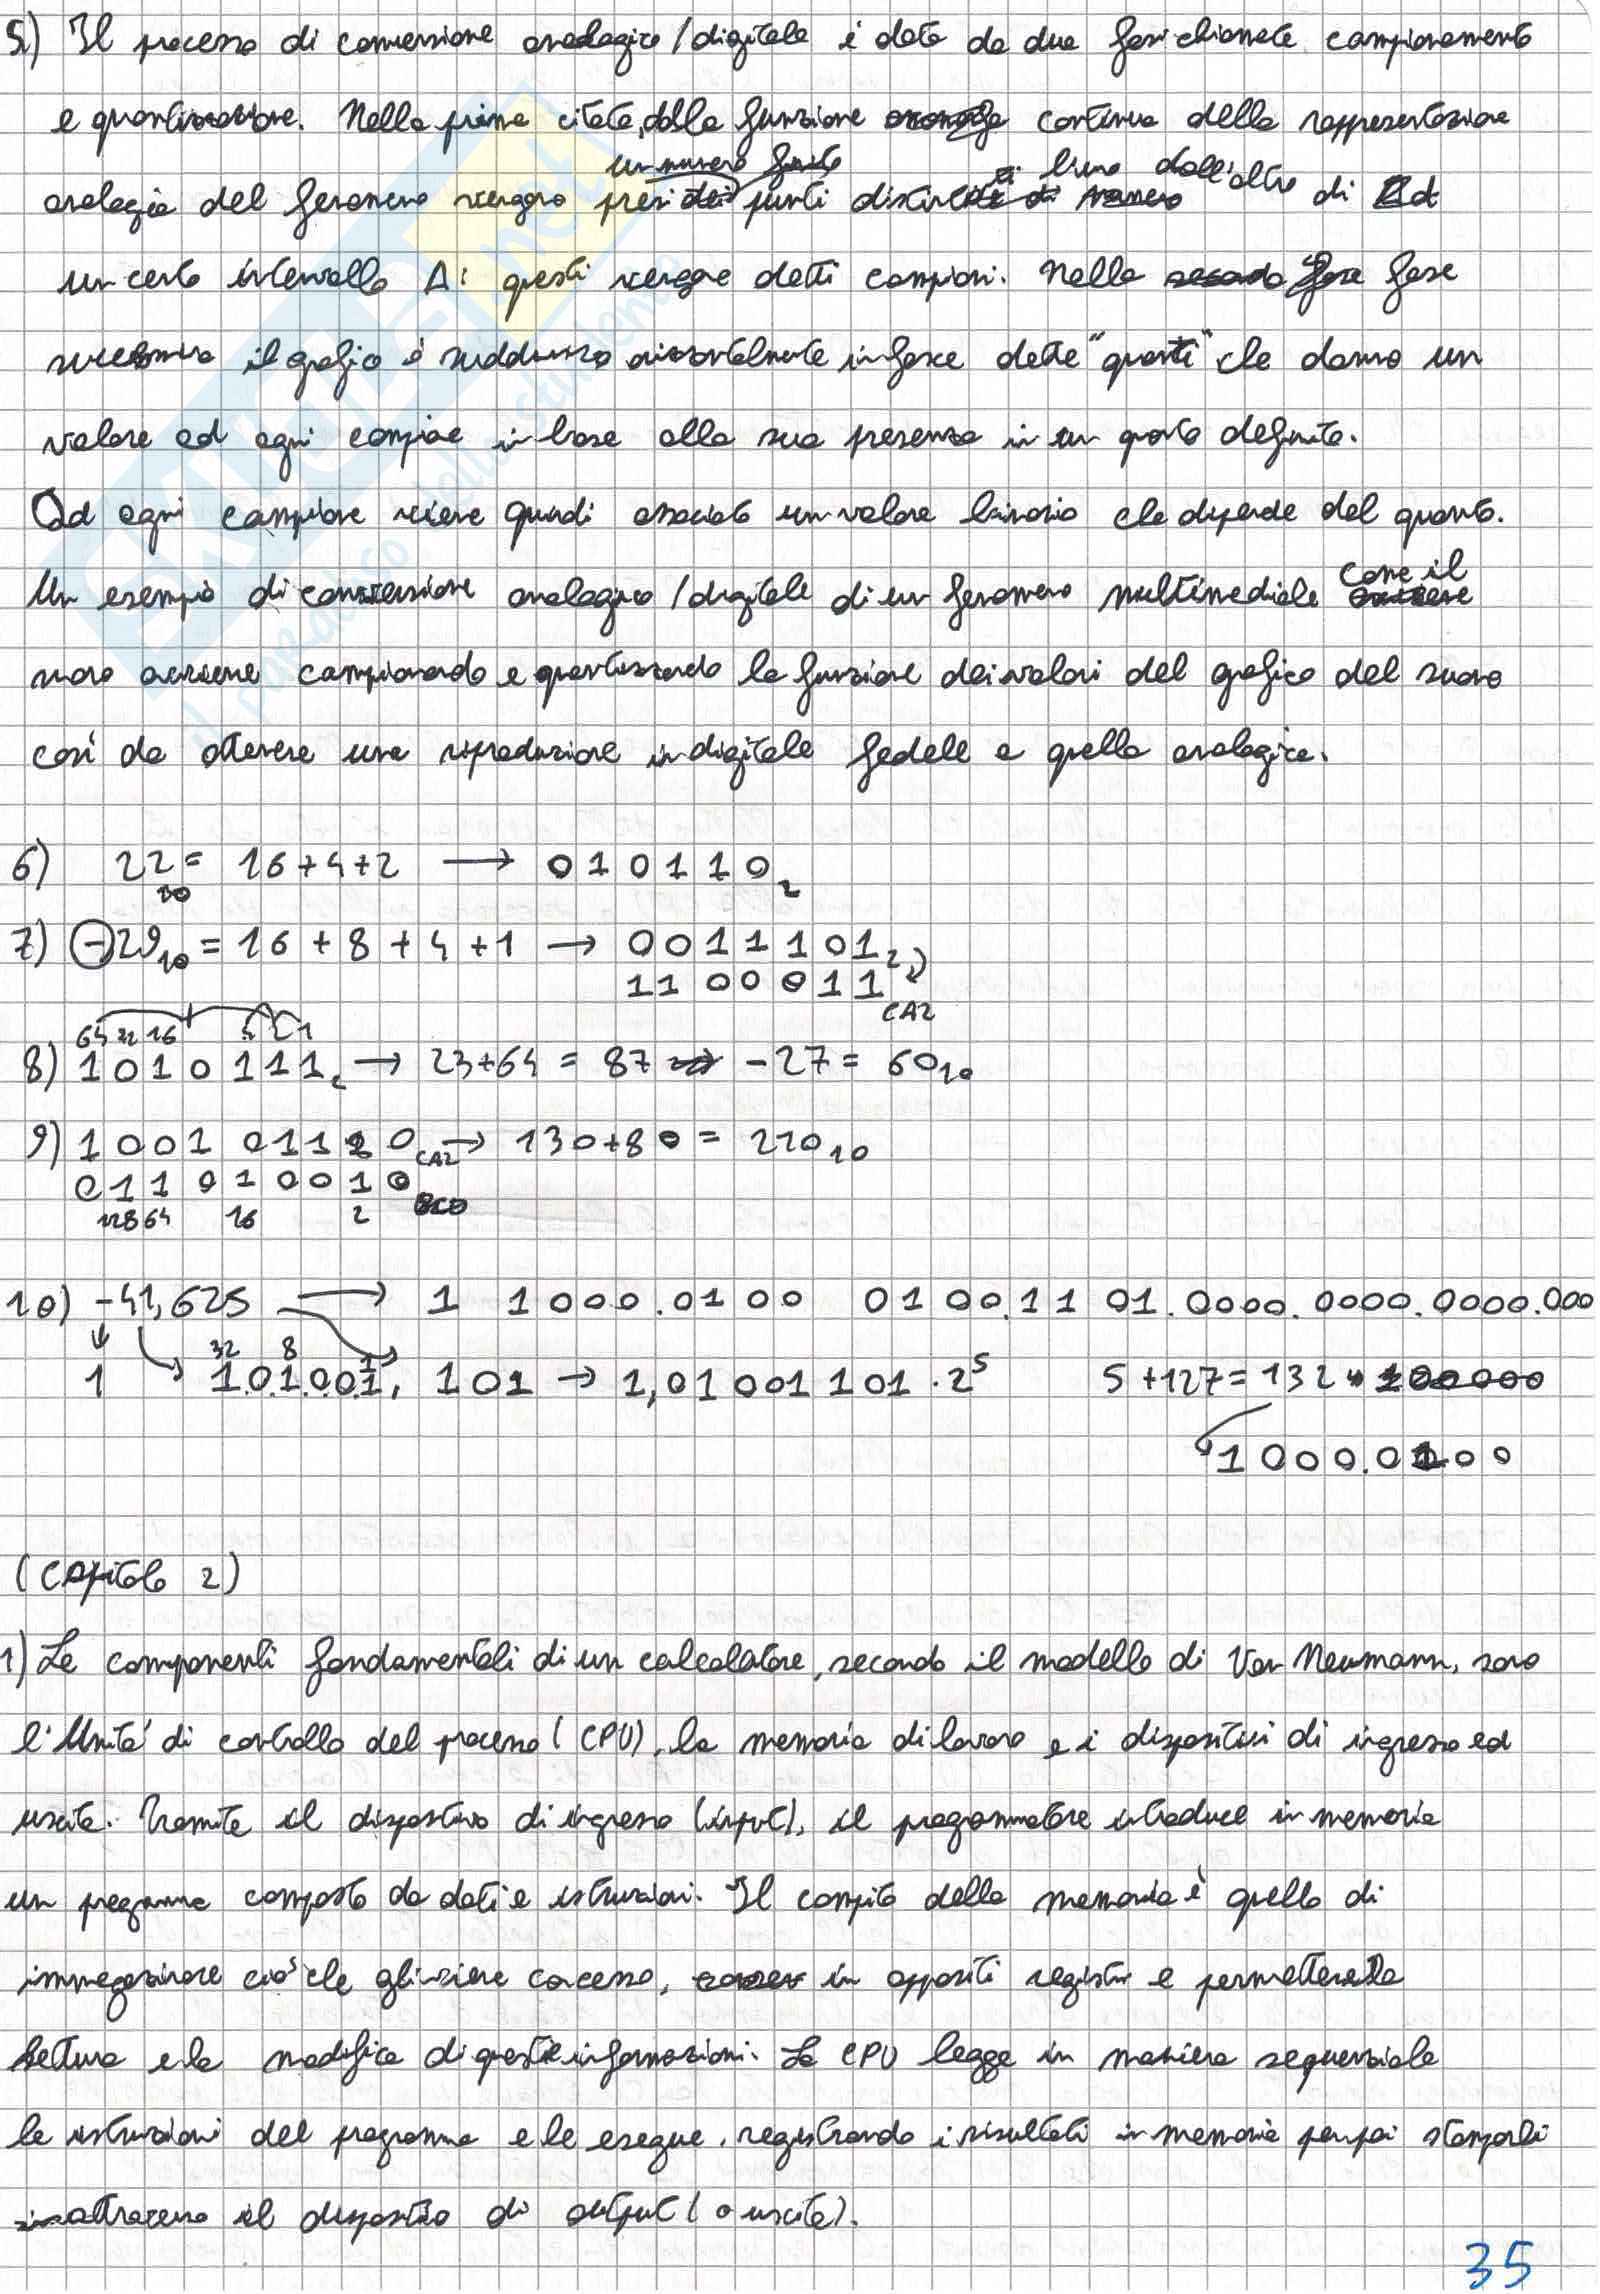 5) Il processo di conversione analogico/digitale è dato da due fasi chiamate campionamento
e quantizzazione. Nella prima citata, dalla funzione continua della rappresentazione
un numero finito
l'uno dall'altro
analogica del fenomeno vengono presi punti distinti di
un certo intervallo Δ: questi vengono detti campioni. Nella fase
successiva il grafico è suddiviso orizzontalmente in fasce dette "quanti" che danno un
valore ad ogni campione in base alla sua presenza in un quanto definito.
Ad ogni campione viene quindi associato un valore binario che dipende dal quanto.
Un esempio di conversione analogico/digitale di un fenomeno multimediale come il
suono avviene campionando e quantizzando la funzione dei valori del grafico del suono
così da ottenere una riproduzione in digitale fedele a quella analogica.
6) 22₁₀ = 16+4+2 → 010110₂
7) -29₁₀ = 16 + 8 + 4 + 1 → 0011101₂
1100011 CA2
64 32 16 4 2 1
8) 1010111₂ → 23+64 = 87 → -27 = 60₁₀
9) 1001011 0 CA2 → 130+80 = 210₁₀
011010010
128 64 16 2
10) -41,625 → 1 1000.0100 0100.1101.0000.0000.0000.000
32 8 1
1 1.0.1.0.0.1, 101 → 1,01001101 · 2⁵ 5+127=132
1000.0100
(Capitolo 2)
1) Le componenti fondamentali di un calcolatore, secondo il modello di Von Neumann, sono
l'Unità di controllo del processo (CPU), la memoria di lavoro e i dispositivi di ingresso ed
uscita. Tramite il dispositivo di ingresso (input), il programmatore introduce in memoria
un programma composto da dati e istruzioni. Il compito della memoria è quello di
immagazzinare ciò che gli viene concesso, in appositi registri e permettere la
lettura e la modifica di queste informazioni. La CPU legge in maniera sequenziale
le istruzioni del programma e le esegue, registrando i risultati in memoria per poi stamparli
attraverso il dispositivo di output (o uscita).
35
il mondo dalla parte dello studente